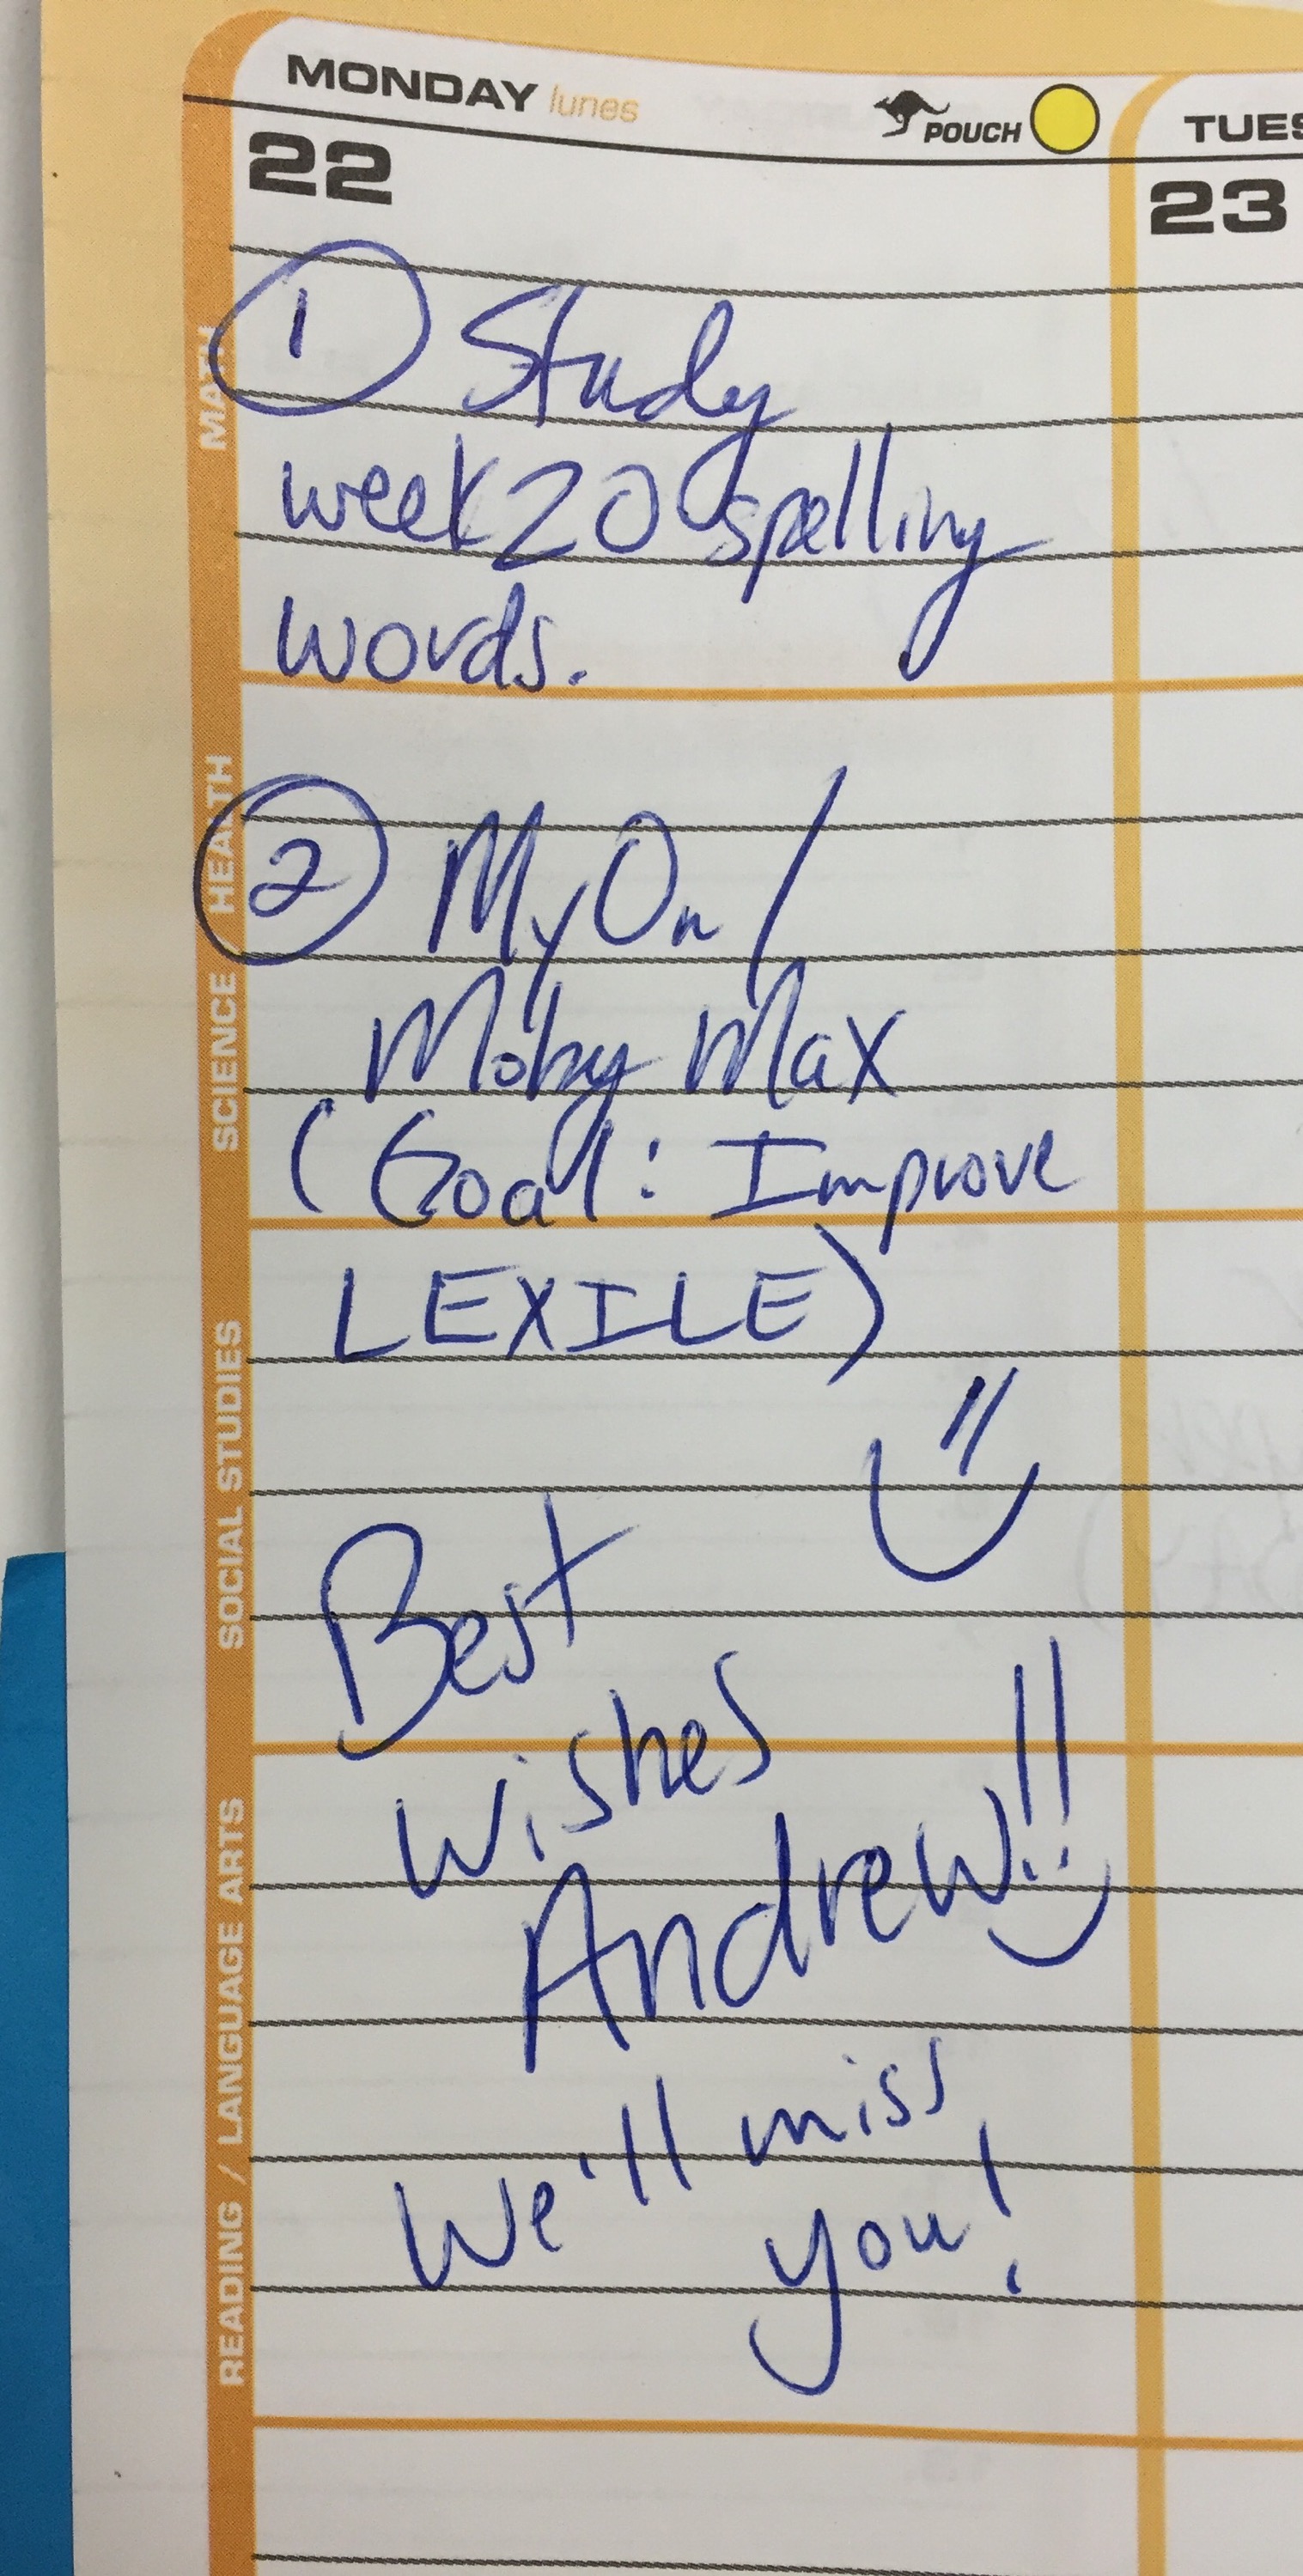 MONDAY lunes POUCH TUES
22 23
MATH
1 Study
week 20 spelling
words.
SCIENCE / HEALTH
2 MyOn /
Moby Max
(Goal: Improve
LEXILE)
SOCIAL STUDIES
Best
wishes
Andrew!!
READING / LANGUAGE ARTS
We'll miss
you!